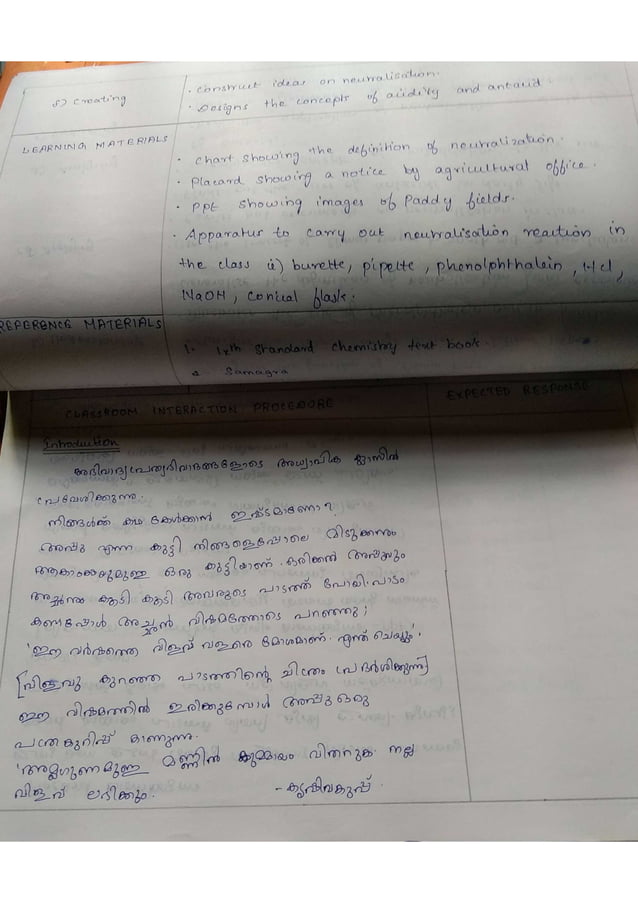 5) Creating
· Construct ideas on neutralisation.
· Designs the concepts of acidity and antacid
LEARNING MATERIALS
· Chart showing the definition of neutralization.
· Placard showing a notice by agricultural office.
· Ppt showing images of Paddy fields.
· Apparatus to carry out neutralisation reaction in
the class ie) burette, pipette, phenolphthalein, HCl,
NaOH, Conical flask.
REFERENCE MATERIALS
1. Ixth Standard Chemistry text book.
2. Samagra
CLASSROOM INTERACTION PROCEDURE
EXPECTED RESPONSE
Introduction
അഭിവാദ്യപ്രത്യഭിവാദങ്ങളോടെ അധ്യാപിക ക്ലാസിൽ
പ്രവേശിക്കുന്നു.
നിങ്ങൾക്ക് കഥ കേൾക്കാൻ ഇഷ്ടമാണോ?
അപ്പു എന്ന കുട്ടി നിങ്ങളെപ്പോലെ മിടുക്കനും
ആകാംക്ഷയുമുള്ള ഒരു കുട്ടിയാണ്. ഒരിക്കൽ അപ്പുവും
അച്ഛനും കൂടി അവരുടെ പാടത്ത് പോയി. പാടം
കണ്ടപ്പോൾ അച്ഛൻ വിഷമത്തോടെ പറഞ്ഞു;
'ഈ വർഷത്തെ വിളവ് വളരെ മോശമാണ്. എന്ത് ചെയ്യും'
[വിളവു കുറഞ്ഞ പാടത്തിന്റെ ചിത്രം പ്രദർശിക്കുന്നു]
ഈ വിഷമത്തിൽ ഇരിക്കുമ്പോൾ അപ്പു ഒരു
പത്രകുറിപ്പ് കാണുന്നു.
'അമ്ലഗുണമുള്ള മണ്ണിൽ കുമ്മായം വിതറുക. നല്ല
വിളവ് ലഭിക്കും. - കൃഷിവകുപ്പ്.